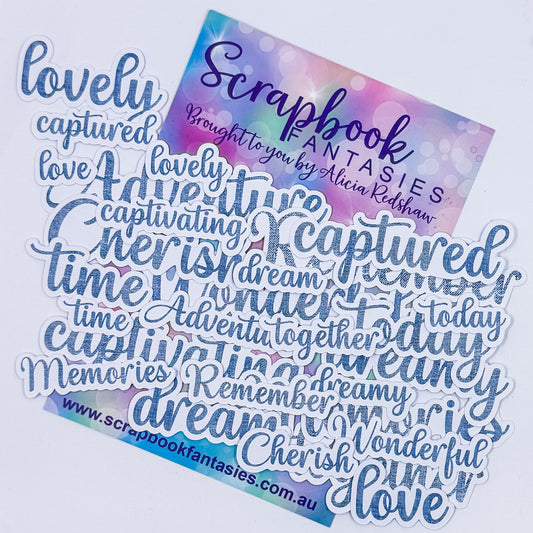 Scrapbook
FANTASIES
Brought to you by Alicia Redshaw
lovely
captured
love
lovely
Adventure
captivating
captured
Cherish
dream
time
today
time
Adventu
together
captivating
dreamy
Memories
Remember
dreamy
dream
Wonderful
Cherish
love
www.scrapbookfantasies.com.au